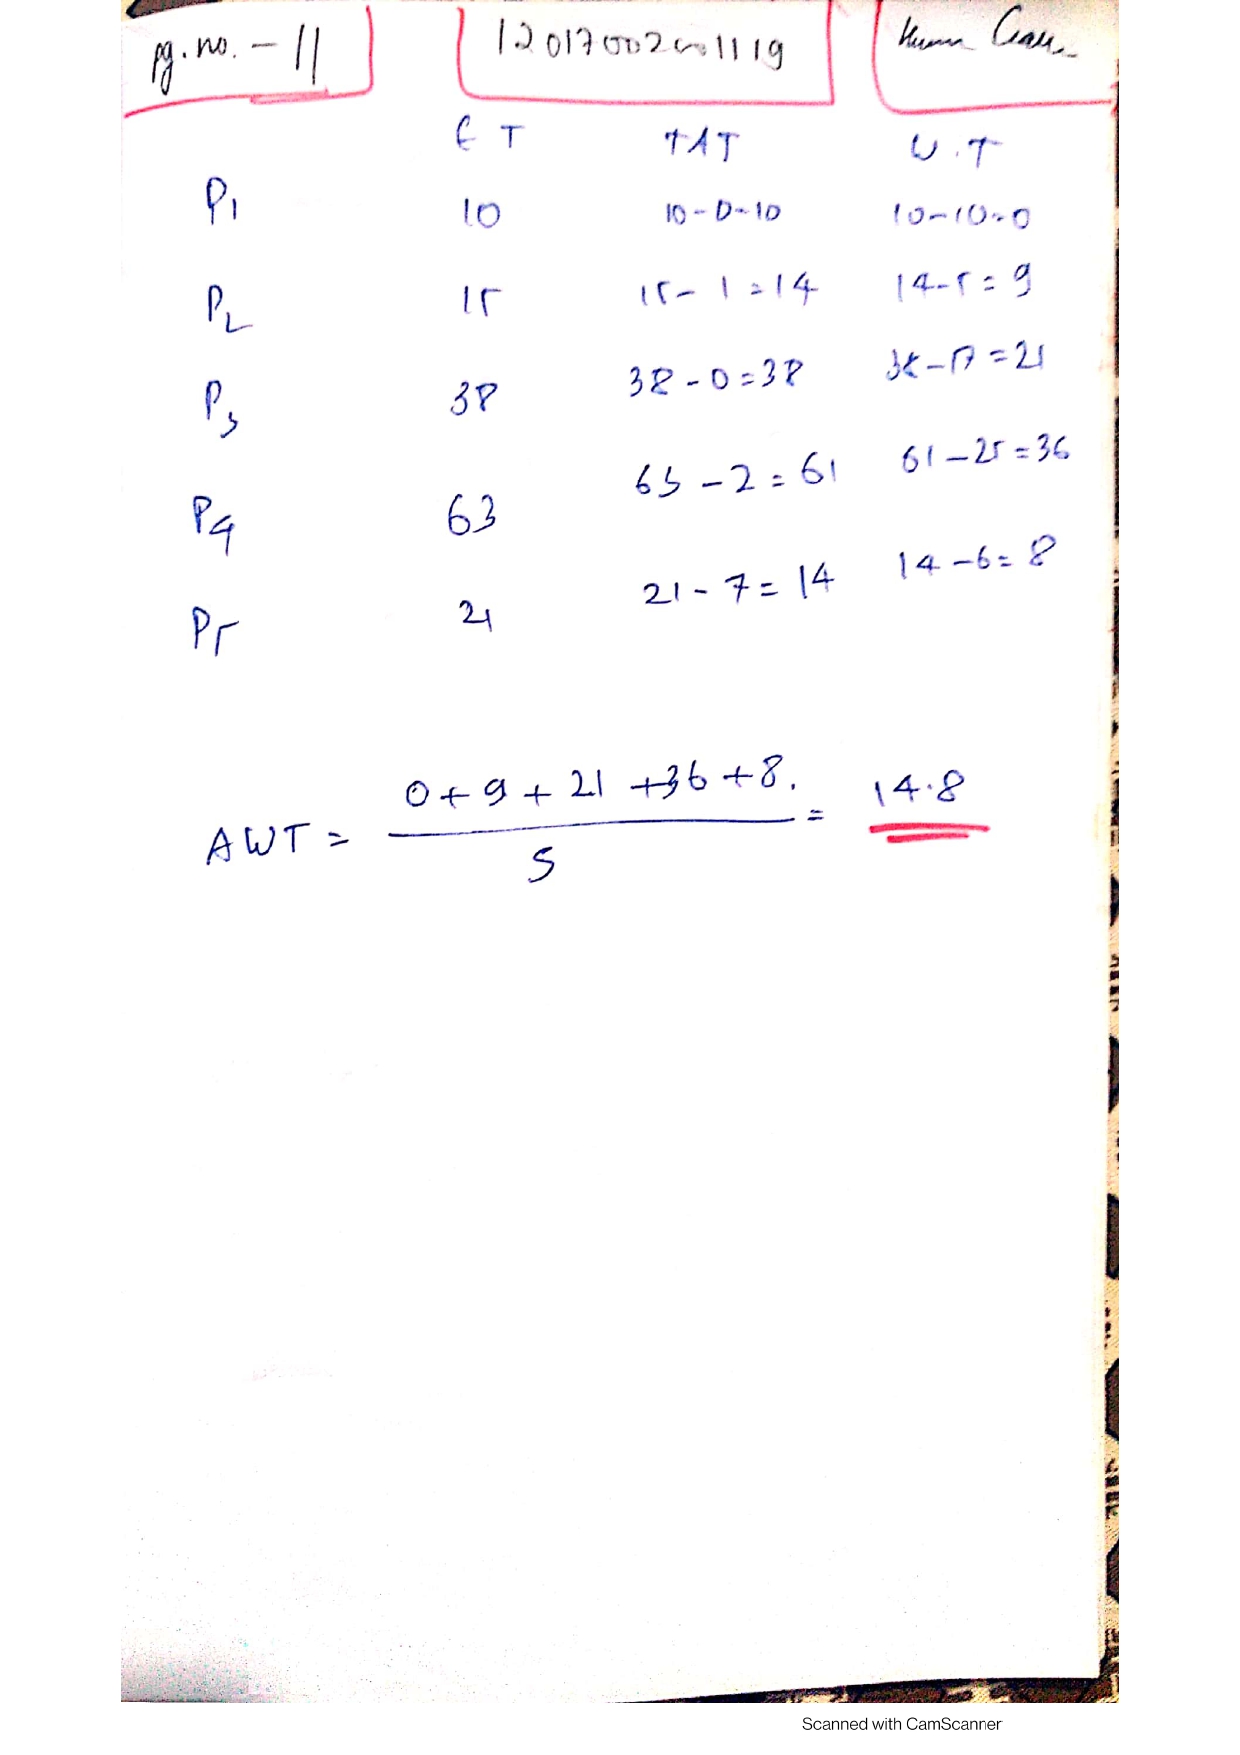 pg. no. - 11 12017002001119
E T TAT W.T
P1 10 10-0-10 10-10=0
P2 15 15-1=14 14-5=9
P3 38 38-0=38 38-17=21
P4 63 63-2=61 61-25=36
P5 21 21-7=14 14-6=8
AWT = 0+9+21+36+8. / 5 = 14.8
Scanned with CamScanner